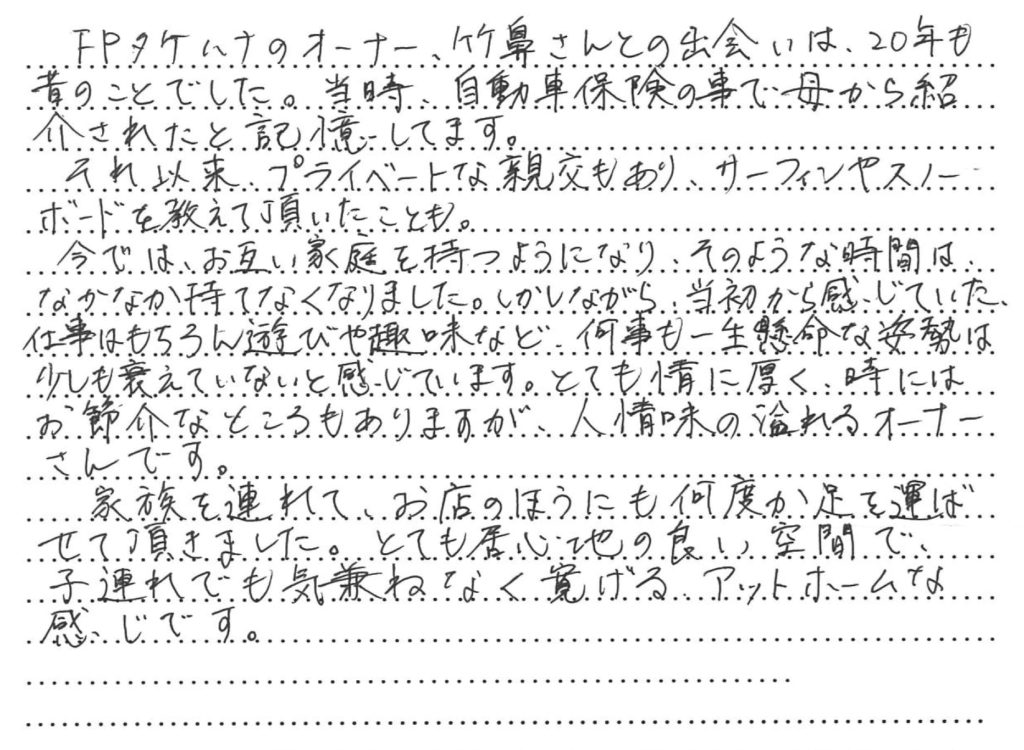 FPタケハナのオーナー、竹鼻さんとの出会いは、20年も
昔のことでした。当時、自動車保険の事で母から紹
介されたと記憶してます。
それ以来、プライベートな親交もあり、サーフィンやスノー
ボードを教えて頂いたことも。
今では、お互い家庭を持つようになり、そのような時間は、
なかなか持てなくなりました。しかしながら、当初から感じていた、
仕事はもちろん遊びや趣味など、何事も一生懸命な姿勢は
少しも衰えていないと感じています。とても情に厚く、時には
お節介なところもありますが、人情味の溢れるオーナー
さんです。
家族を連れて、お店のほうにも何度か足を運ば
せて頂きました。とても居心地の良い空間で、
子連れでも気兼ねなく寛げる、アットホームな
感じです。